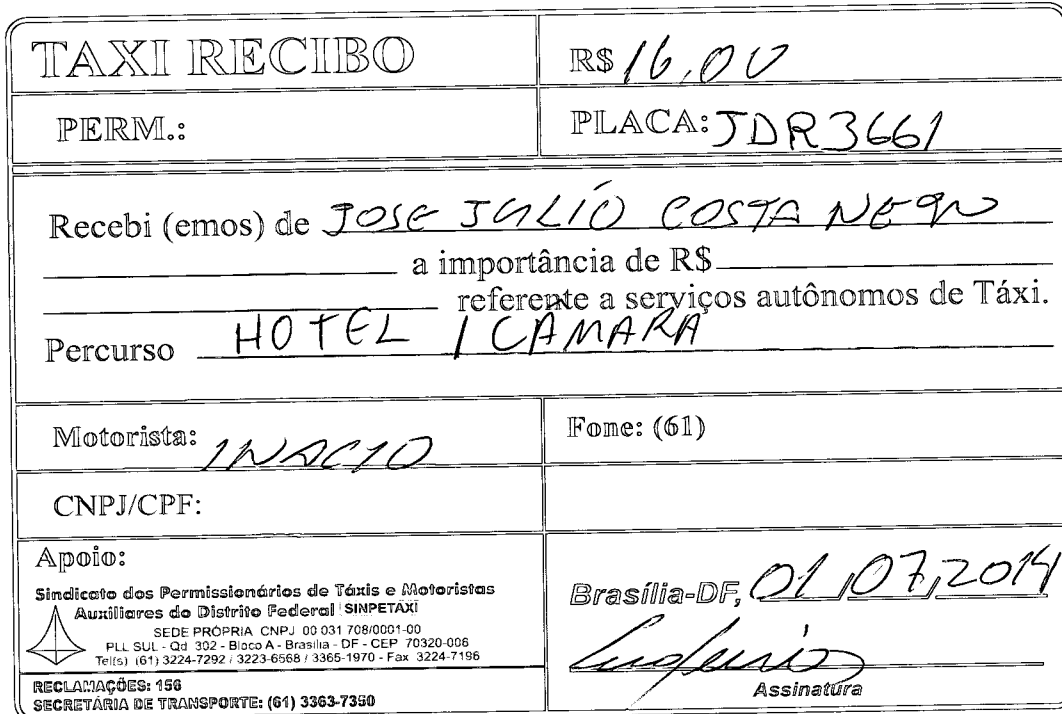 TAXI RECIBO
R$ 16,00
PERM.:
PLACA: JDR3661
Recebi (emos) de JOSE JULIO COSTA NETO
a importância de R$
referente a serviços autônomos de Táxi.
Percurso HOTEL / CÂMARA
Motorista: INACIO
Fone: (61)
CNPJ/CPF:
Apoio:
Sindicato dos Permissionários de Táxis e Motoristas
Auxiliares do Distrito Federal SINPETAXI
SEDE PRÓPRIA CNPJ 00 031 708/0001-00
PLL SUL - Qd 302 - Bloco A - Brasília - DF - CEP 70320-006
Tel(s) (61) 3224-7292 / 3223-6568 / 3365-1970 - Fax 3224-7196
RECLAMAÇÕES: 156
SECRETÁRIA DE TRANSPORTE: (61) 3363-7350
Brasília-DF, 01/07/2014
Assinatura